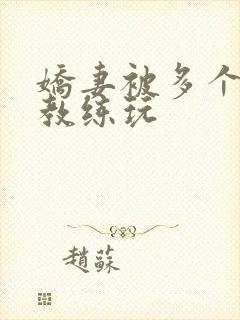 嬌妻被多个
教练玩
趙蘇